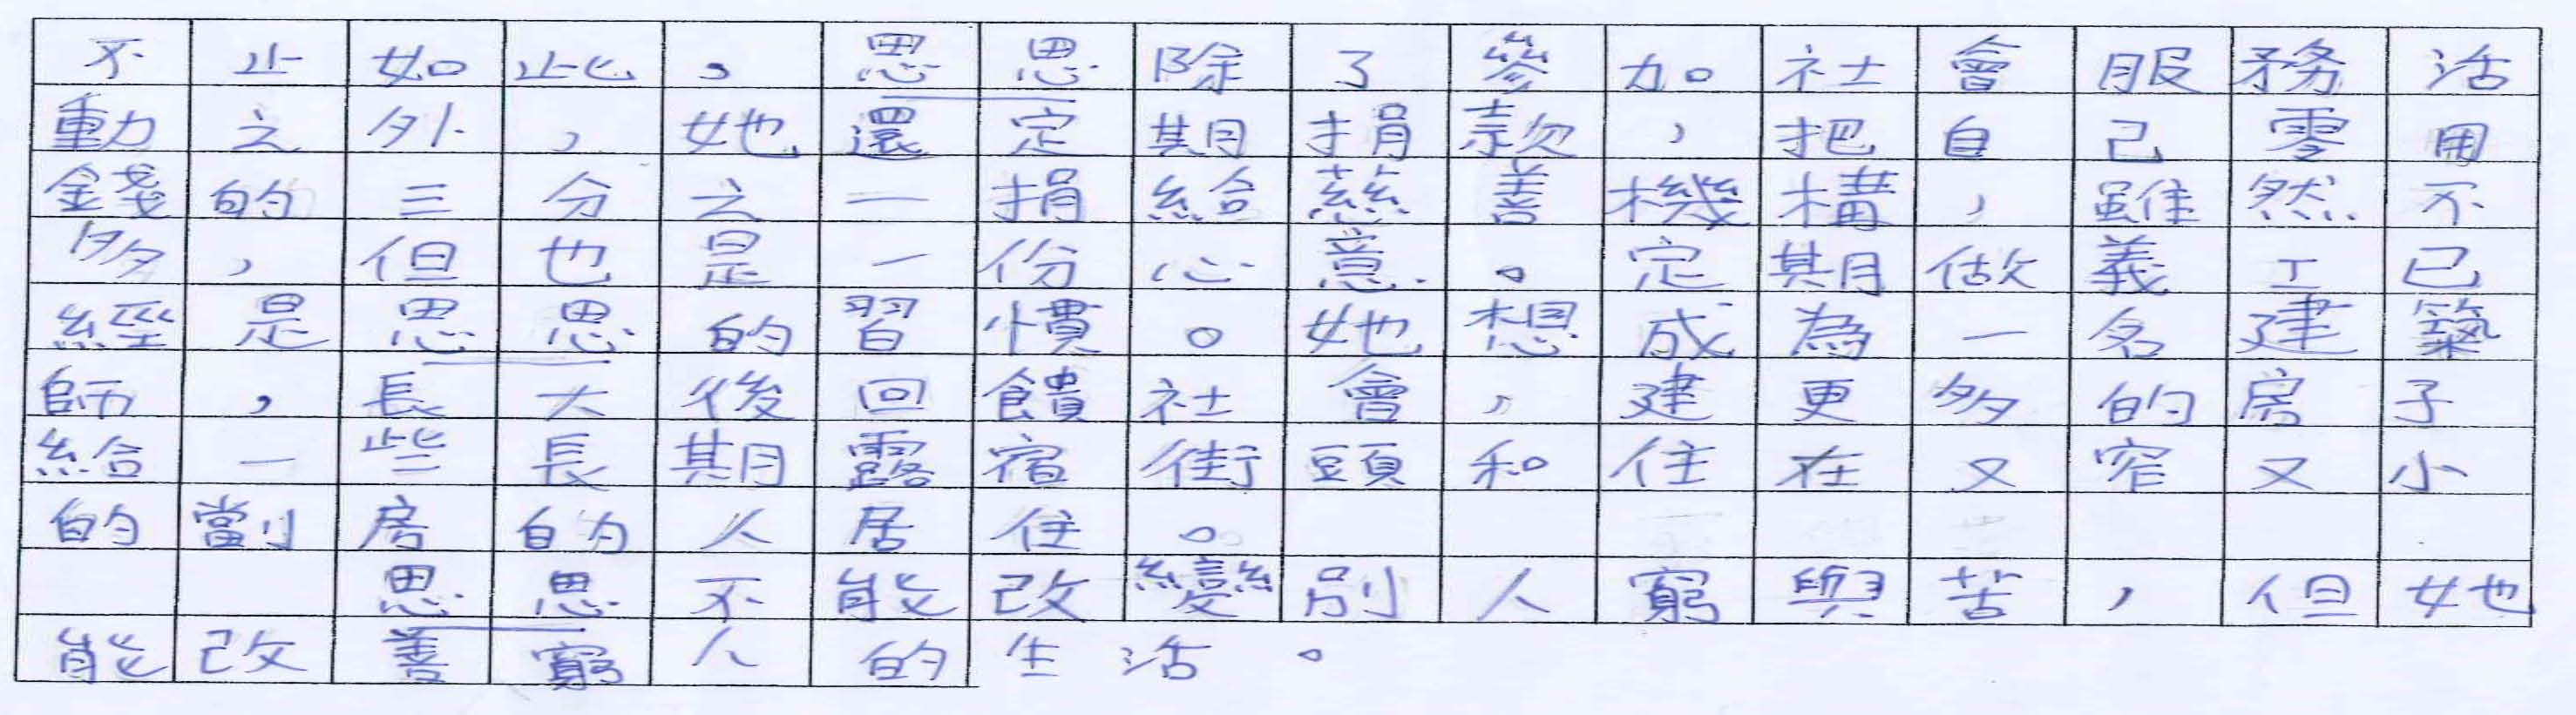 不止如此，思思除了參加社會服務活
動之外，她還定期捐款，把自己零用
錢的三分之一捐給慈善機構，雖然不
多，但也是一份心意。定期做義工已
經是思思的習慣。她想成為一名建築
師，長大後回饋社會，建更多的房子
給一些長期露宿街頭和住在又窄又小
的劏房的人居住。
思思不能改變別人窮與苦，但她
能改善窮人的生活。